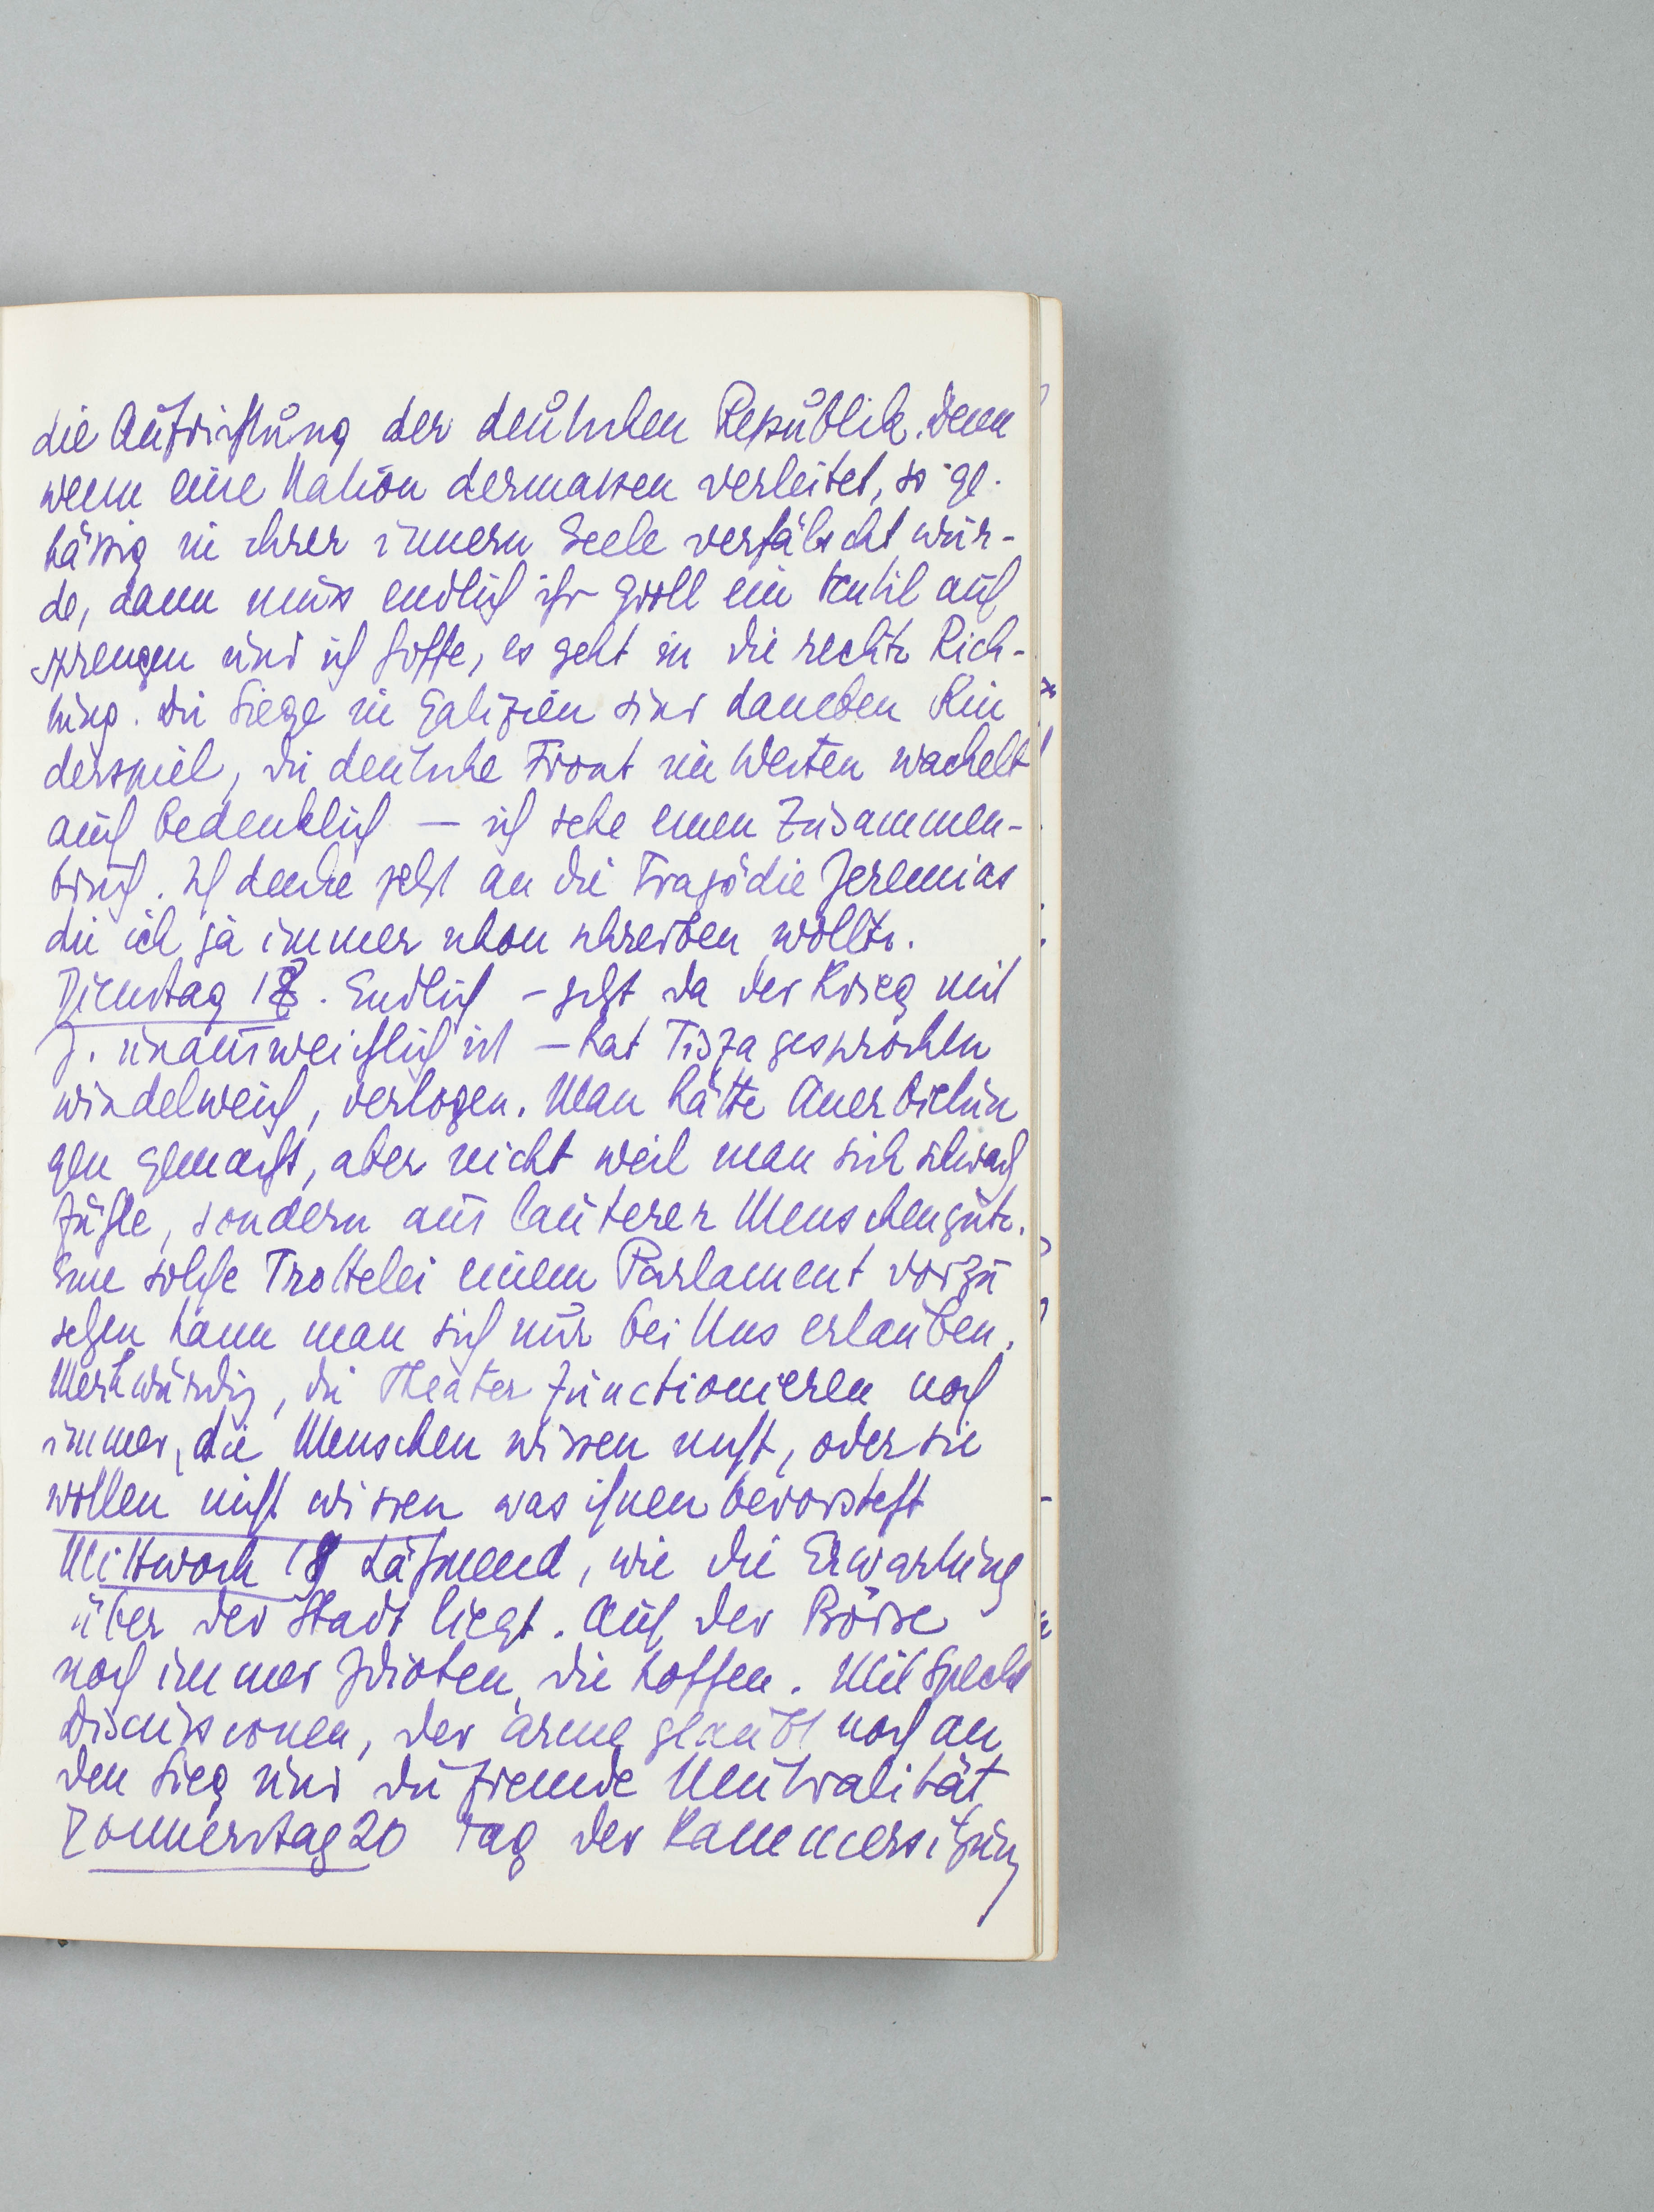 die Aufrichtung der deutschen Republik. Denn
wenn eine Nation dermassen verleitet, so ge-
hässig in ihrer innern Seele verfälscht wur-
de, dann muss endlich ihr Groll ein Ventil auf
sprengen und ich hoffe, es geht in die rechte Rich-
tung. Die Siege in Galizien sind daneben Kin
derspiel, die deutsche Front im Westen wackelt
auch bedenklich – ich sehe einen Zusammen-
bruch. Ich denke jetzt an die Tragödie Jeremias
die ich ja immer schon schreiben wollte.
Dienstag 18. Endlich – jetzt da der Krieg mit
J. unausweichlich ist – hat Tisza gesprochen
windelweich, verlogen. Man hätte Anerbietun
gen gemacht, aber nicht weil man sich schwach
fühle, sondern aus lauterer Menschengüte.
Eine solche Trottelei einem Parlament vorzu
setzen kann man sich nur bei Uns erlauben.
Merkwürdig, die Theater functionieren noch
immer, die Menschen wissen nicht, oder sie
wollen nicht wissen was ihnen bevorsteht
Mittwoch 19 Lähmend, wie die Erwartung
über der Stadt liegt. Auf der Börse
noch immer Idioten, die hoffen. Mit Specht
Discussionen, der arme glaubt noch an
den Sieg und die fremde Neutralität
Donnerstag 20 Tag der Kammersitzung